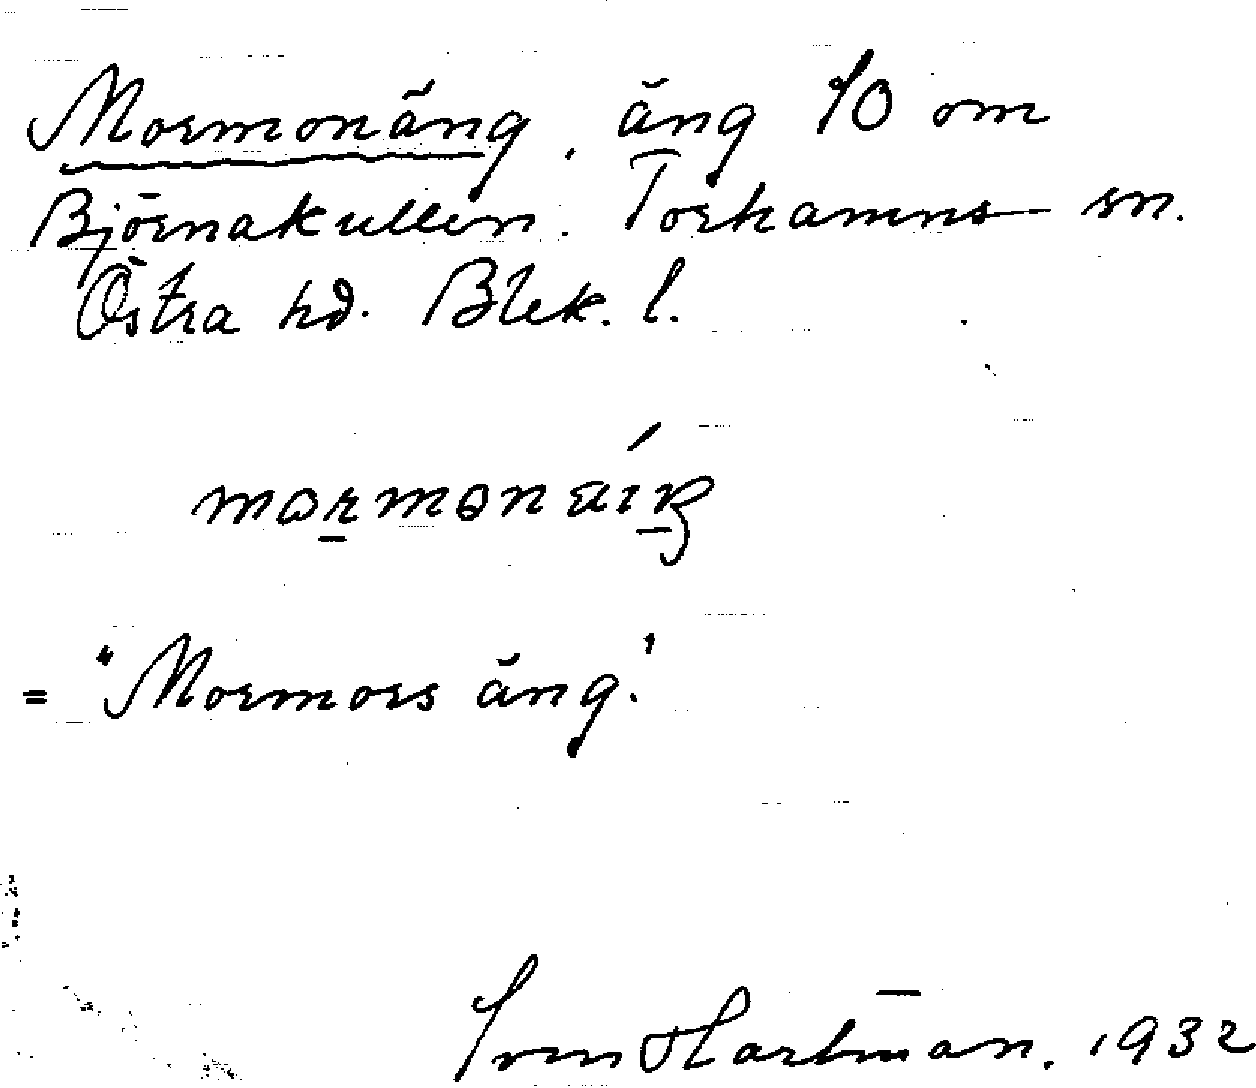 Mormonäng, äng SO om
Björnakullen. Torhamns sn.
Östra hd. Blek. l.
= "Mormors äng."
Sven Hartman. 1932